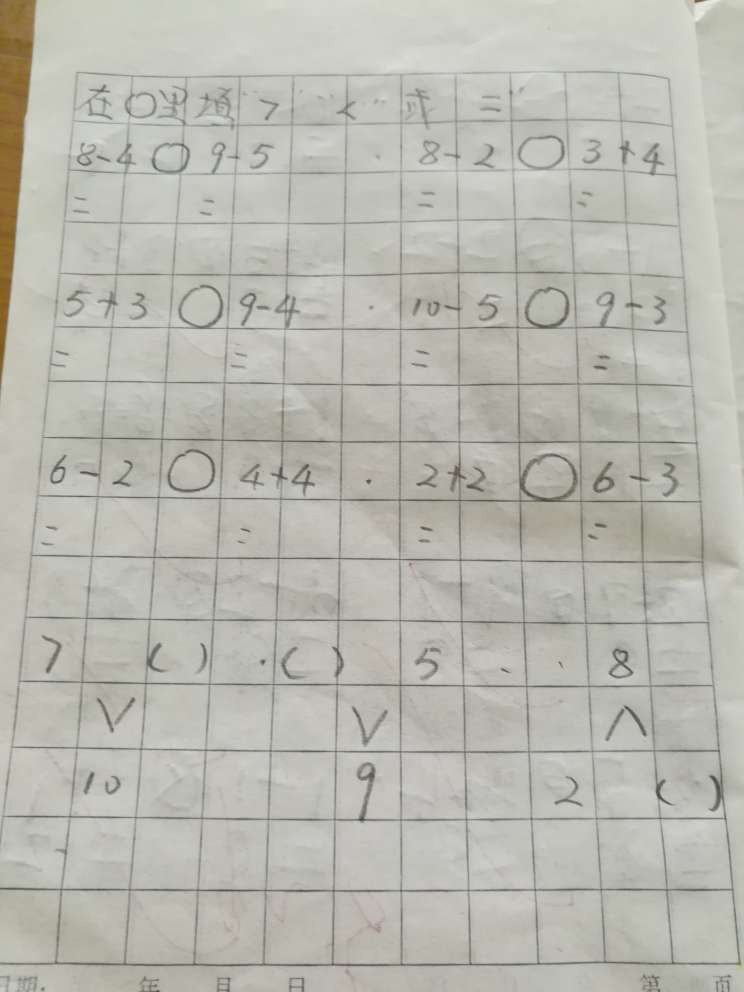 在○里填">""<"或"="
8-4○9-5 · 8-2○3+4
= = = =
5+3○9-4 · 10-5○9-3
= = = =
6-2○4+4 · 2+2○6-3
= = = =
7 ( ) · ( ) 5 · · 8
∨ ∨ ∧
10 9 2 ( )
日期: 年 月 日 第 页